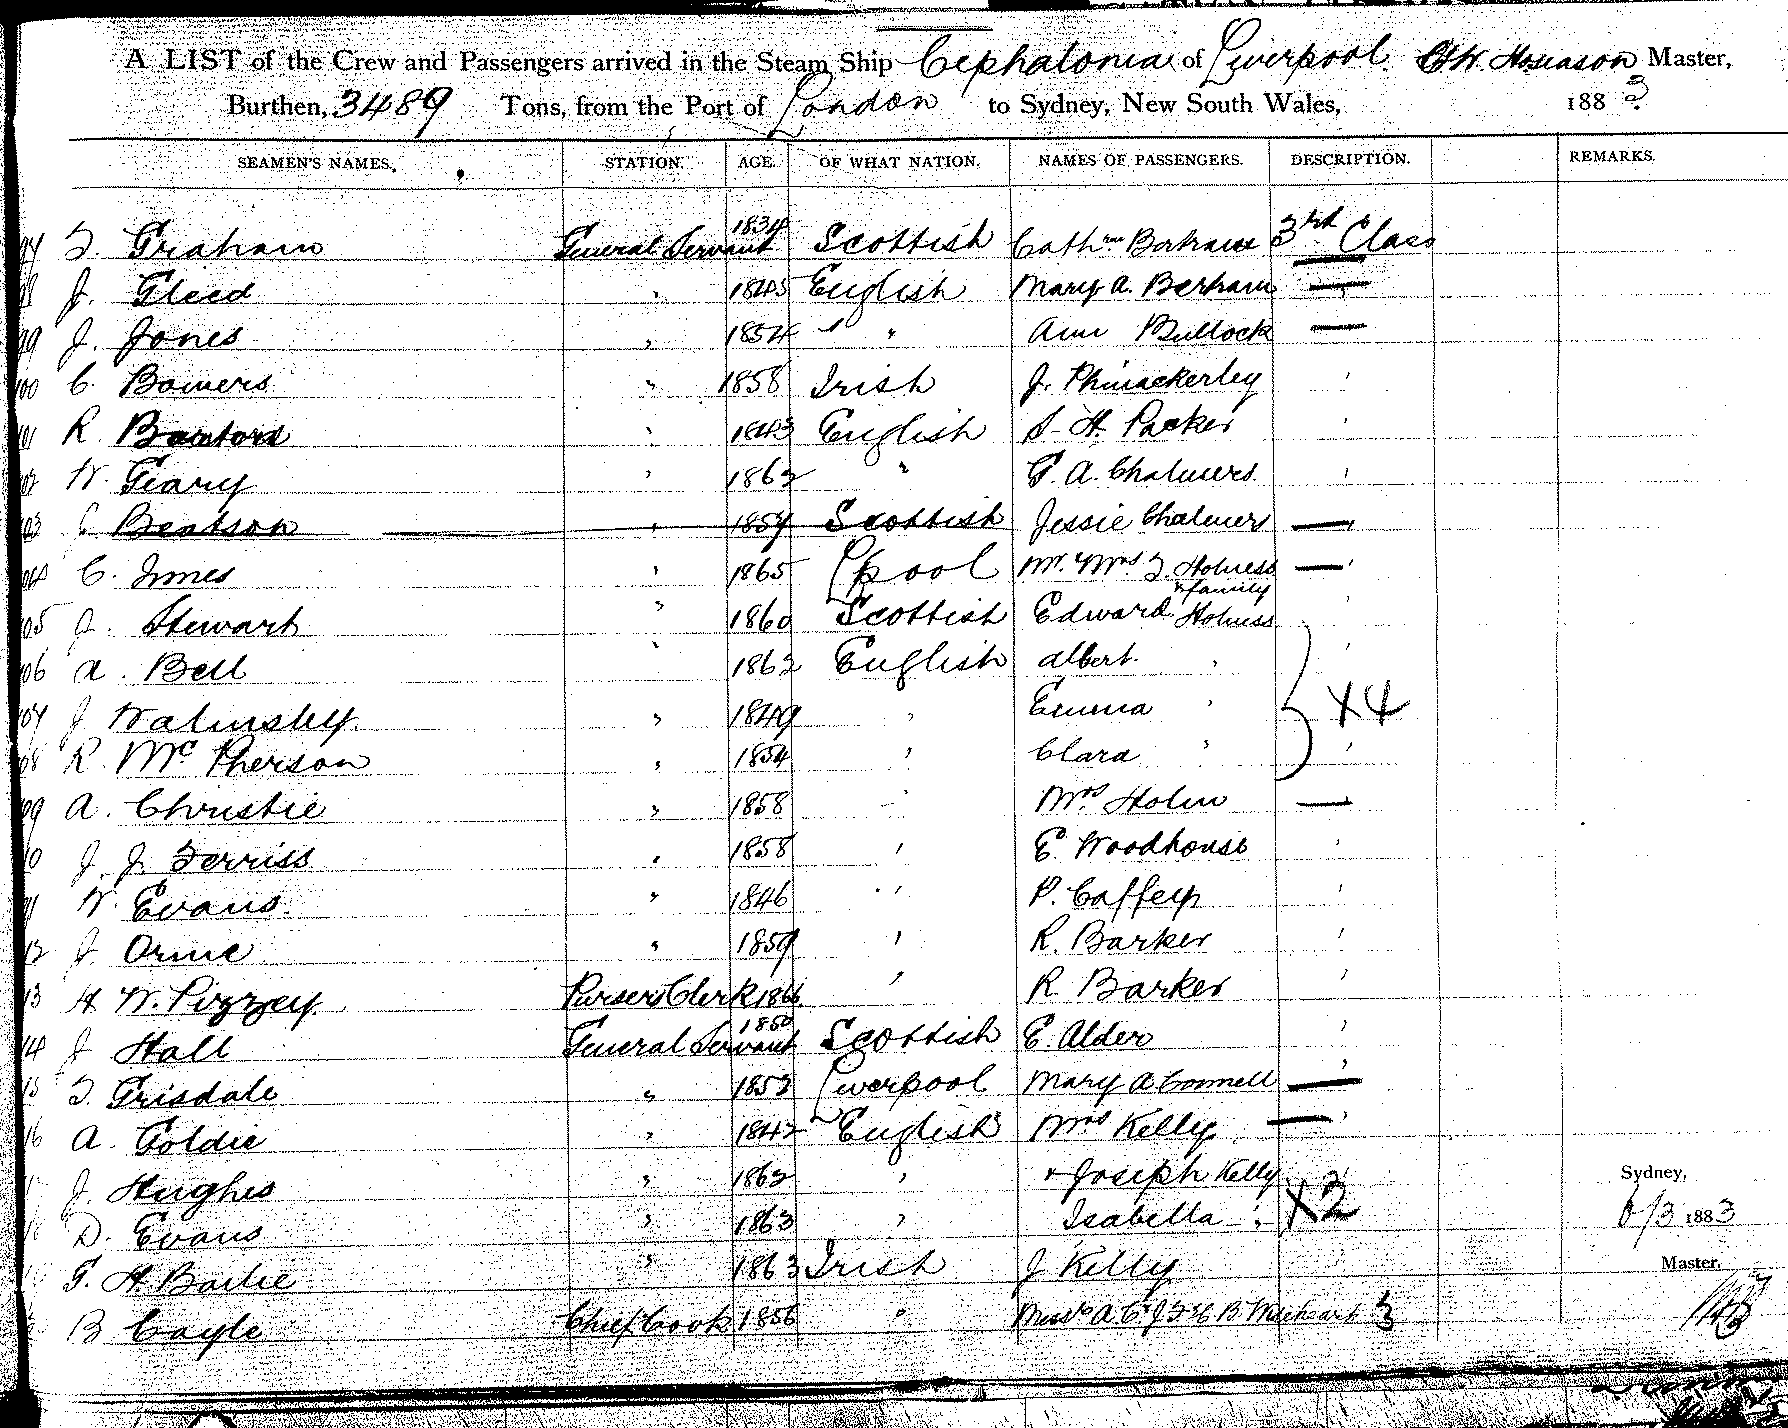 A LIST of the Crew and Passengers arrived in the Steam Ship Cephalonia of Liverpool Hoseason Master,
Burthen, 3489 Tons, from the Port of London to Sydney, New South Wales, 1883
SEAMEN'S NAMES. STATION. AGE. OF WHAT NATION. NAMES OF PASSENGERS. DESCRIPTION. REMARKS.
97 T. Graham General Servant 1834 Scottish Cathne Bertram 3rd Class
98 J. Gleed " 1845 English Mary A. Bertram —
99 J. Jones " 1854 " Ann Bullock —
100 C. Bowers " 1858 Irish J. "
101 R. " 1843 English S. H. Packer "
102 W. Geary " 1862 " G. A. Chalmers "
103 Beatson " 1857 Scottish Jessie Chalmers —
104 C. Innes " 1865 Lpool Mr. & Mrs T. Holness & family —
105 J. Stewart " 1860 Scottish Edward Holness "
106 A. Bell " 1862 English Albert "
107 J Walmsley " 1849 " Emma " X4
108 R. Mc Pherson " 1854 " Clara "
109 A. Christie " 1858 " Mrs Holm —
110 J. J. Ferriss " 1858 " E. Woodhouse "
111 W. Evans " 1846 " P. Caffery "
112 J. Orme " 1859 " R. Barker "
113 H. W. Pizzey Pursers Clerk 1866 " R Barker "
114 J Hall General Servant 1850 Scottish E. Alder "
115 T. Grisdale " 1853 Liverpool Mary A Connell —
116 A. Goldie " 1842 English Mrs Kelly —
J. Hughes " 1862 " & Joseph Kelly X2
Sydney,
D. Evans " 1863 " Isabella "
6/3 1883
G. H. Bailie " 1863 Irish J Kelly
Master.
B Cayle Chief Cook 1856 " 3